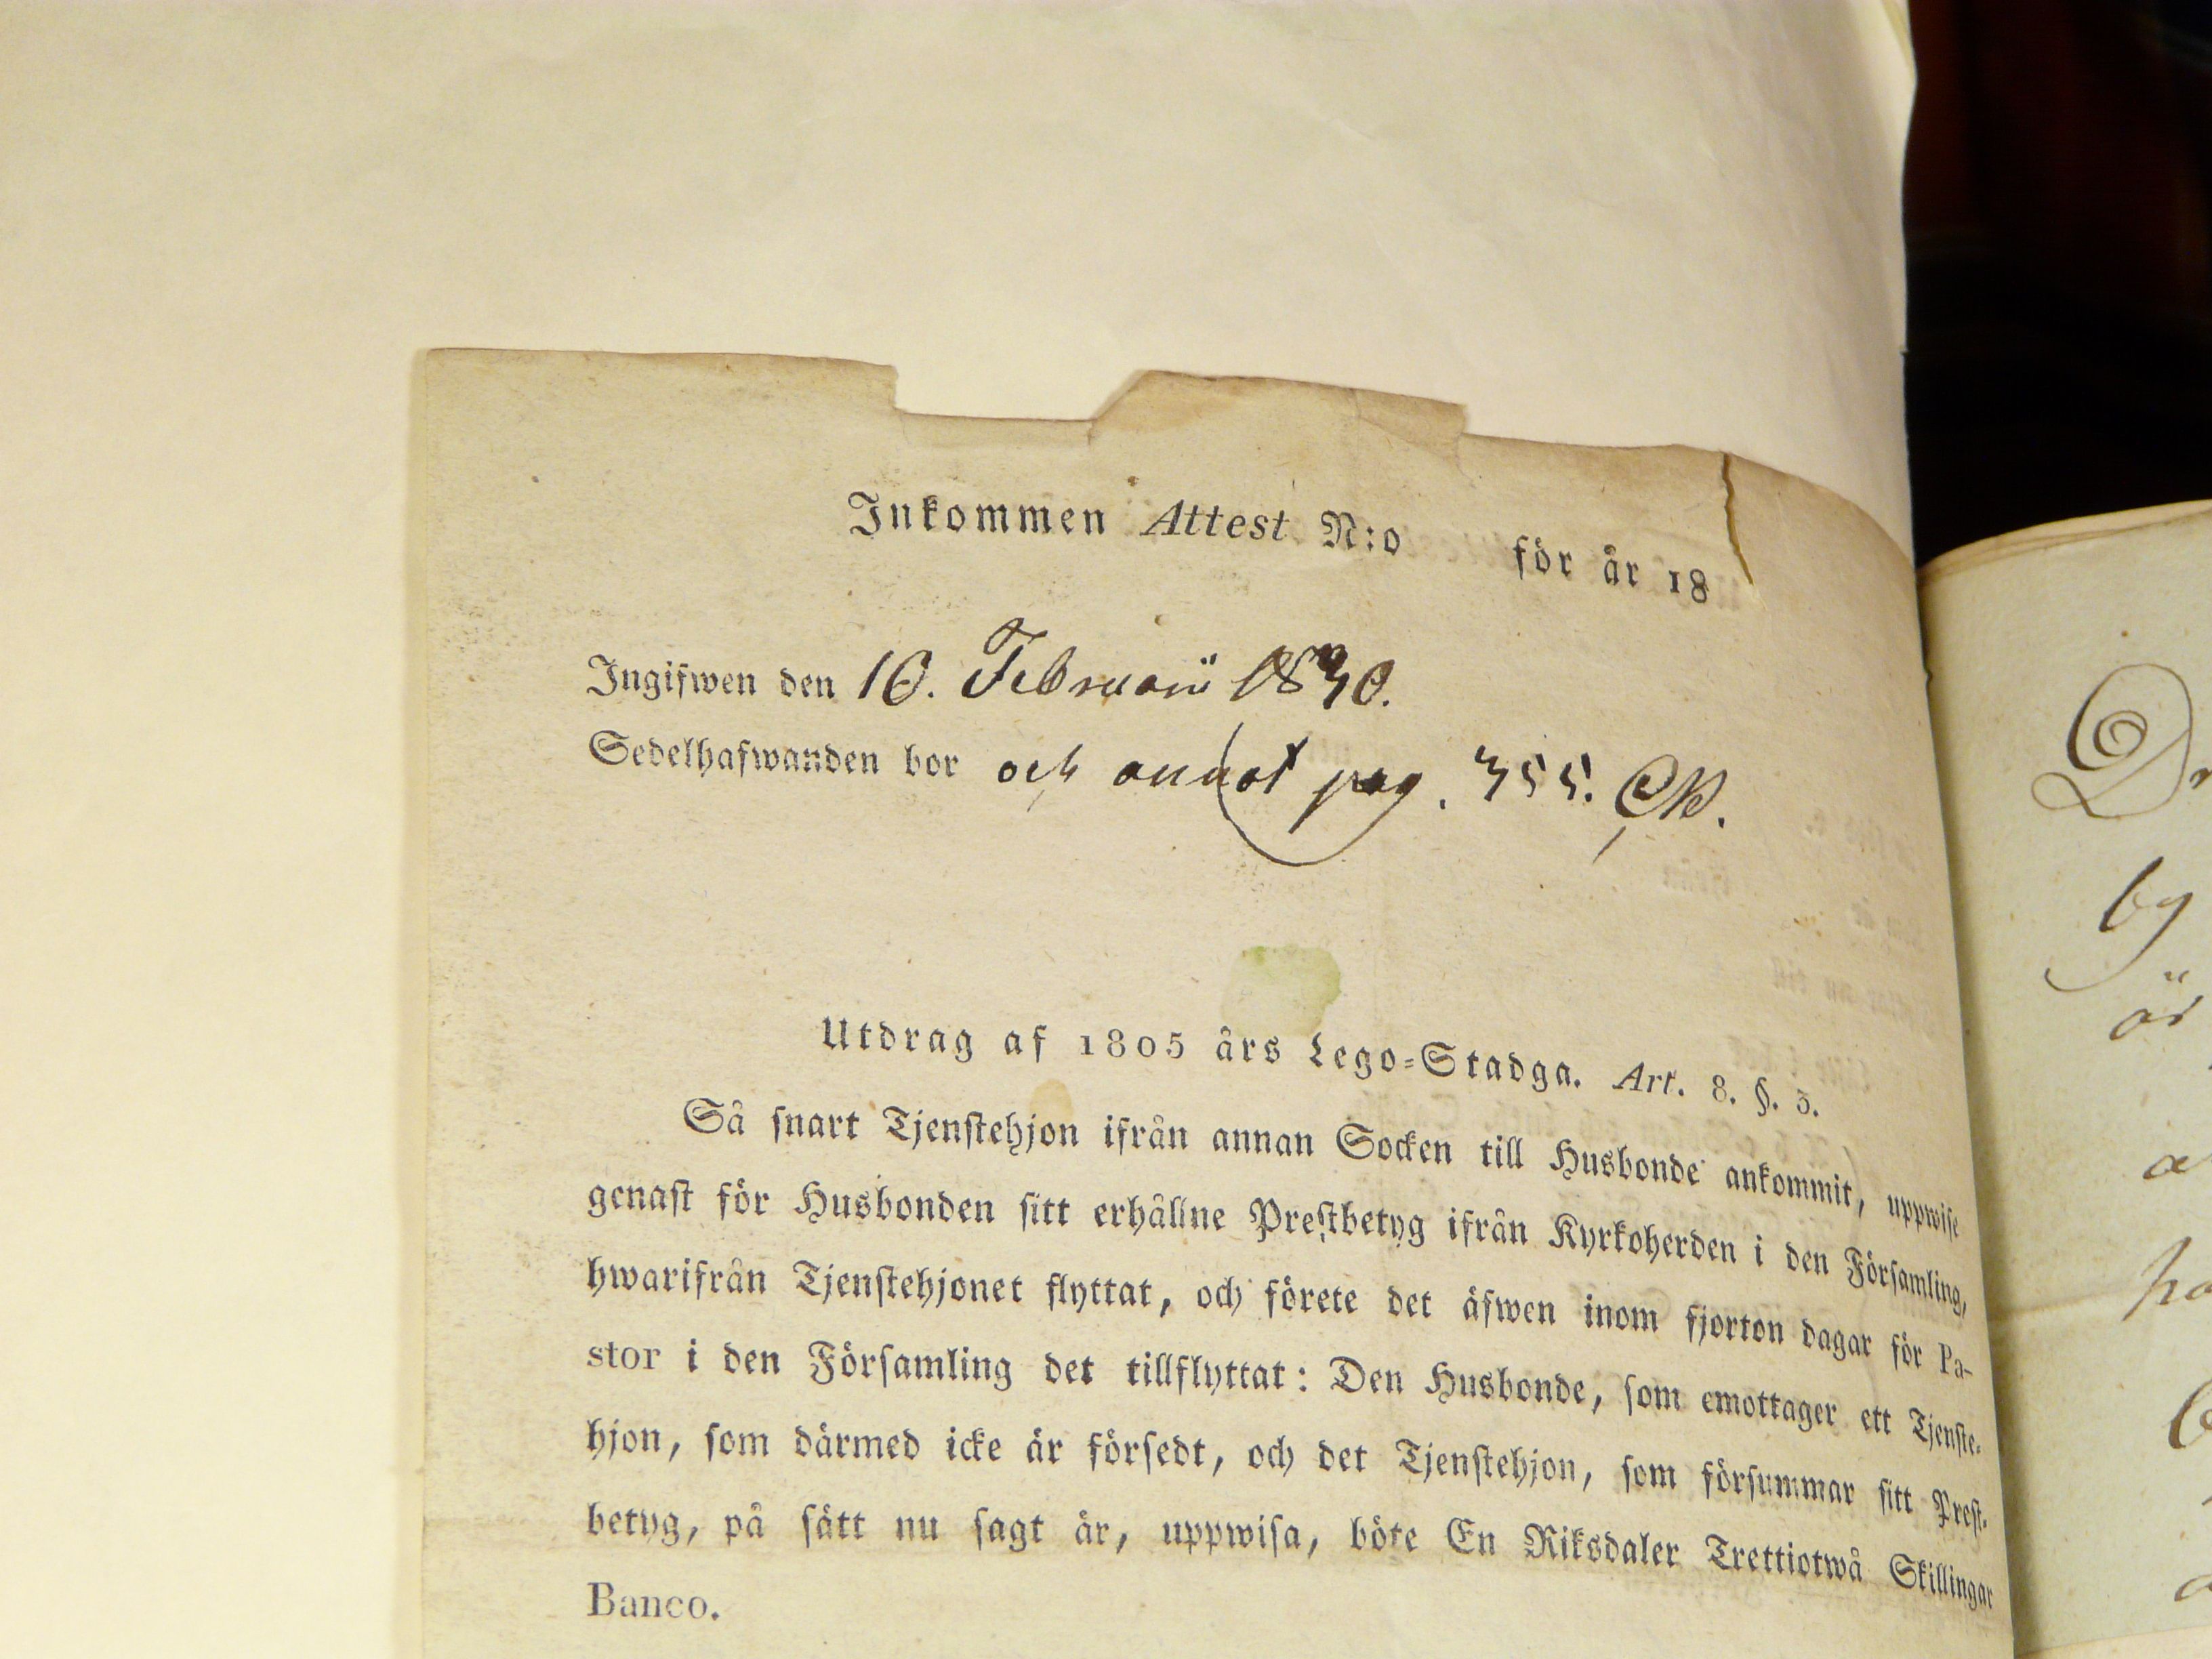 Inkommen Attest N:o för år 18
Ingifwen den 16. Februarii 1830.
Sedelhafwanden bor och pag. 355.
Utdrag af 1805 års Lego-Stadga. Art. 8. §. 3.
Så snart Tjenstehjon ifrån annan Socken till Husbonde ankommit, uppwise
genast för Husbonden sitt erhållne Prestbetyg ifrån Kyrkoherden i den Församling,
hwarifrån Tjenstehjonet flyttat, och förete det äfwen inom fjorton dagar för Pa-
stor i den Församling det tillflyttat: Den Husbonde, som emottager ett Tjenste-
hjon, som därmed icke är försedt, och det Tjenstehjon, som försummar sitt Prest-
betyg, på sätt nu sagt är, uppwisa, böte En Riksdaler Trettiotwå Skillingar
Banco.
by
är